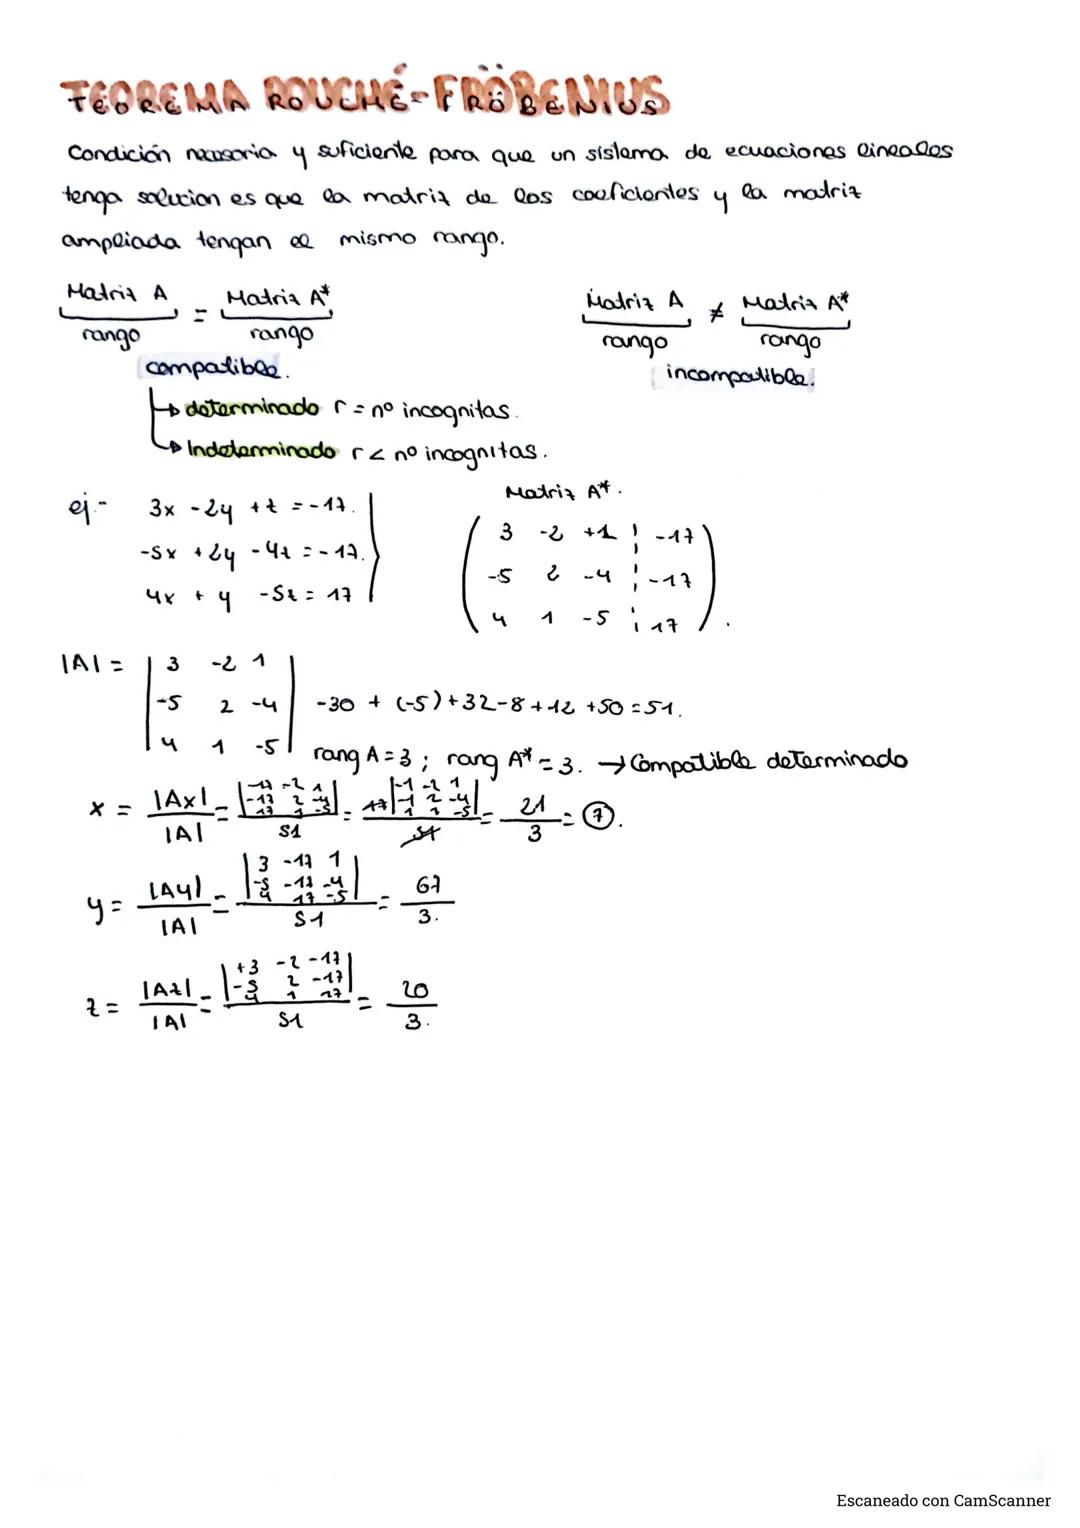 TEOREMA ROUCHÉ-FRÖBENIUS
Condición necesaria y suficiente para que un sistema de ecuaciones lineales
tenga solucion es que la matriz de los coeficientes y la matriz
ampliada tengan el mismo rango.
Matriz A = Matriz A* Matriz A ≠ Matriz A*
rango rango rango rango
compatible. incompatible.
↳ determinado r = nº incognitas.
↳ Indeterminado r < nº incognitas.
Matriz A*.
ej.- 3x -2y +z = -17.
-5x +2y -4z = -17.
4x + y -5z = 17
3 -2 +1 | -17
-5 2 -4 | -17
4 1 -5 | 17
|A| = | 3 -2 1 |
| -5 2 -4 | -30 + (-5) + 32 - 8 + 12 + 50 = 51.
| 4 1 -5 |
rang A = 3 ; rang A* = 3. → Compatible determinado
x = |Ax| / |A| = | -17 -2 1 | -17 2 -4 | 17 1 -5 | / 51 = 17 | -1 -2 1 | -1 2 -4 | 1 1 -5 | / 51 = 21 / 3 = 7.
y = |Ay| / |A| = | 3 -17 1 | -5 -17 -4 | 4 17 -5 | / 51 = 67 / 3.
z = |Az| / |A| = | +3 -2 -17 | -5 2 -17 | 4 1 17 | / 51 = 20 / 3.
Escaneado con CamScanner